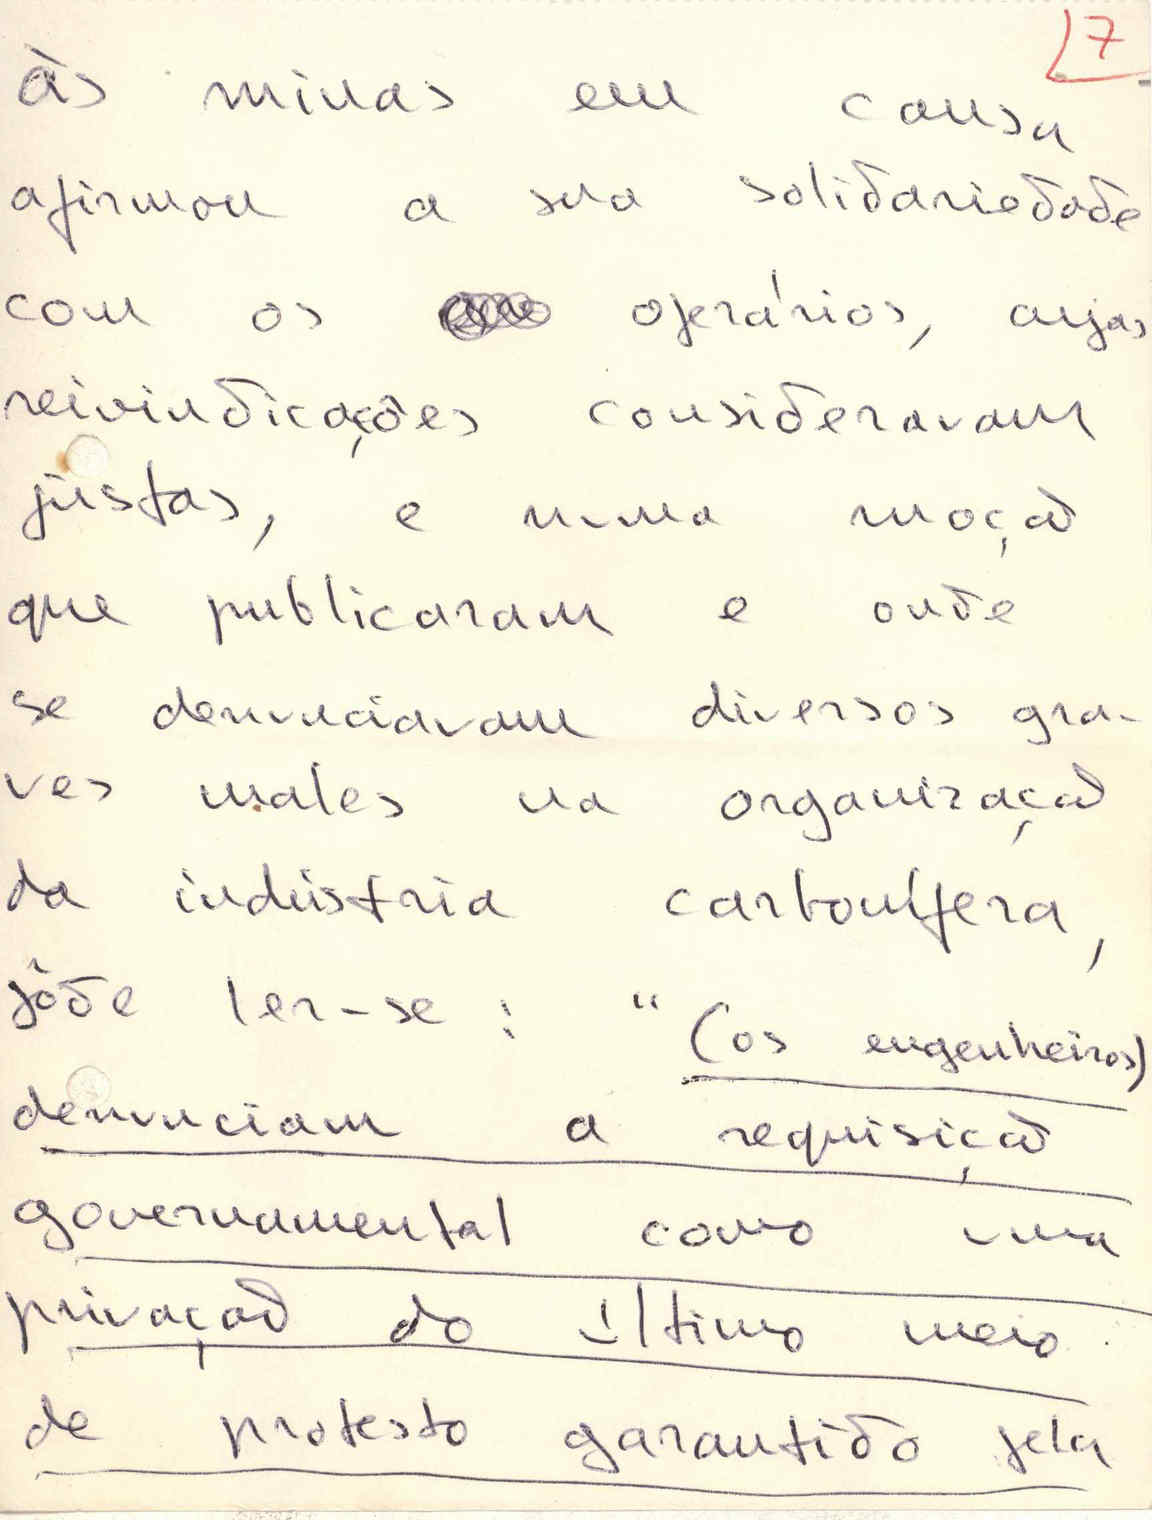 7
às minas em causa
afirmou a sua solidariedade
com os operários, cujas
reivindicações consideravam
justas, e numa moção
que publicaram e onde
se denunciavam diversos gra-
ves males na organização
da indústria carbonífera,
pôde ler-se : " (os engenheiros)
denunciam a requisição
governamental como uma
privação do último meio
de protesto garantido pela